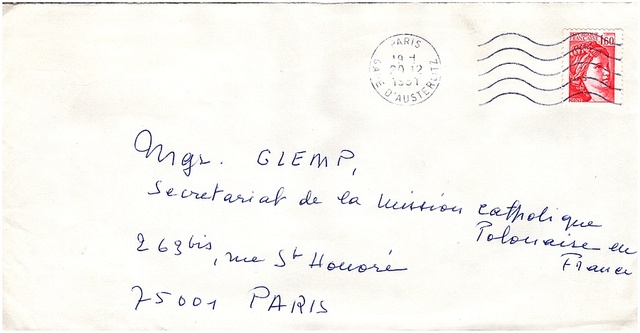 PARIS
19 H
20-12
1981
GARE D'AUSTERLITZ
1,60
Mgr. GLEMP,
Secretariat de la Mission catholique
Polonaise en
France
263bis, rue St Honoré
75001 PARIS